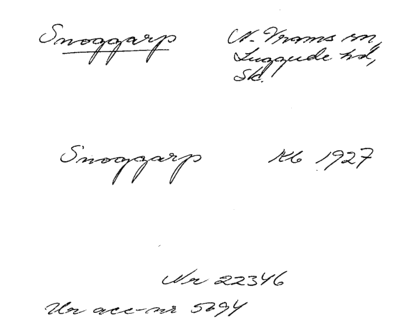 Snoggarp N. Vrams sn,
Luggude hd,
Sk.
Snoggarp Kb 1927
Nr 22346
Ur acc-nr 5694